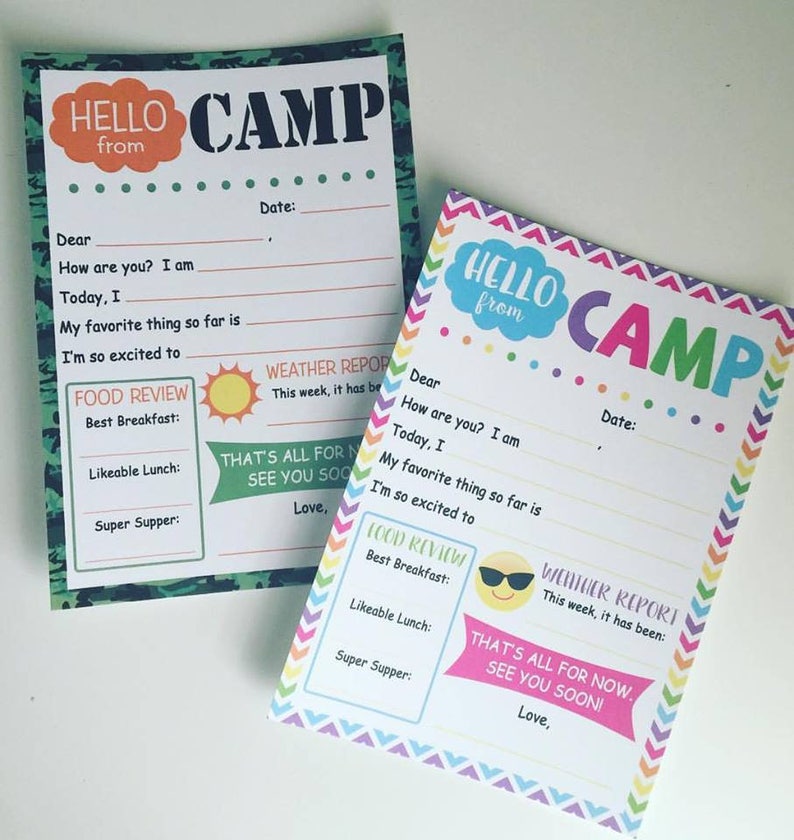 HELLO
from
CAMP
Date:
Dear ,
How are you? I am
Today, I
My favorite thing so far is
I'm so excited to
FOOD REVIEW
Best Breakfast:
Likeable Lunch:
Super Supper:
WEATHER REPOR
This week, it has be
THAT'S ALL FOR N
SEE YOU SOO
Love,
HELLO
from
CAMP
Date:
Dear ,
How are you? I am
Today, I
My favorite thing so far is
I'm so excited to
FOOD REVIEW
Best Breakfast:
Likeable Lunch:
Super Supper:
WEATHER REPORT
This week, it has been:
THAT'S ALL FOR NOW.
SEE YOU SOON!
Love,